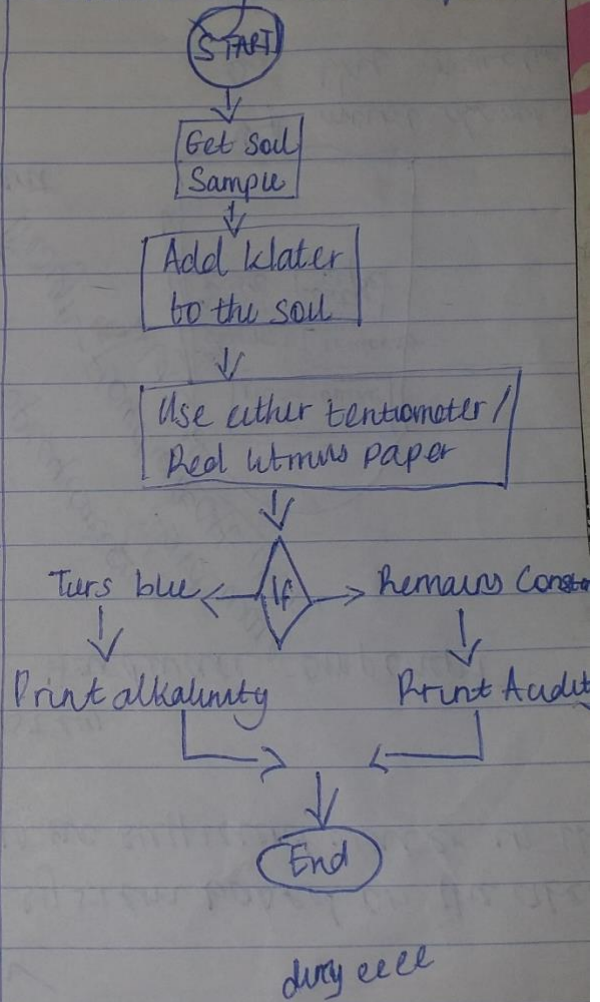 START
Get soil
Sample
Add Water
to the soil
Use either tentiometer/
Red litmus paper
If
Turs blue
Remains Const
Print alkalinity
Print Acidit
End